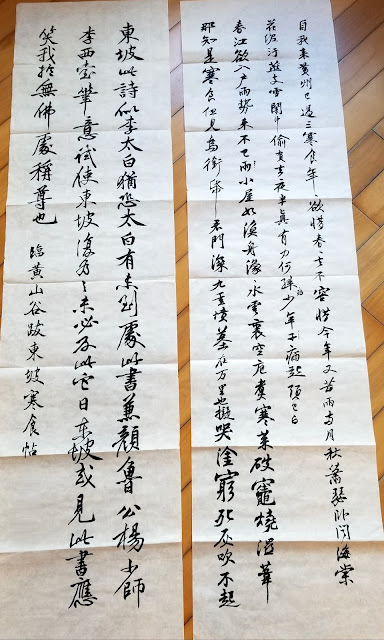 自我來黃州已過三寒食年欲惜春去不容惜今年又苦雨兩月秋蕭瑟卧聞海棠
花泥汙燕支雪闇中偷負去夜半真有力何殊少年子病起頭已白
春江欲入戶雨勢來不已雨小屋如漁舟濛水雲裏空庖煮寒菜破竈燒濕葦
那知是寒食但見烏銜帋君門深九重墳墓在万里也擬哭塗窮死灰吹不起
東坡此詩似李太白猶恐太白有未到處此書兼顏魯公楊少師
李西臺筆意試使東坡復為之未必及此它日東坡或見此書應
笑我於無佛處稱尊也 臨黃山谷跋東坡寒食帖